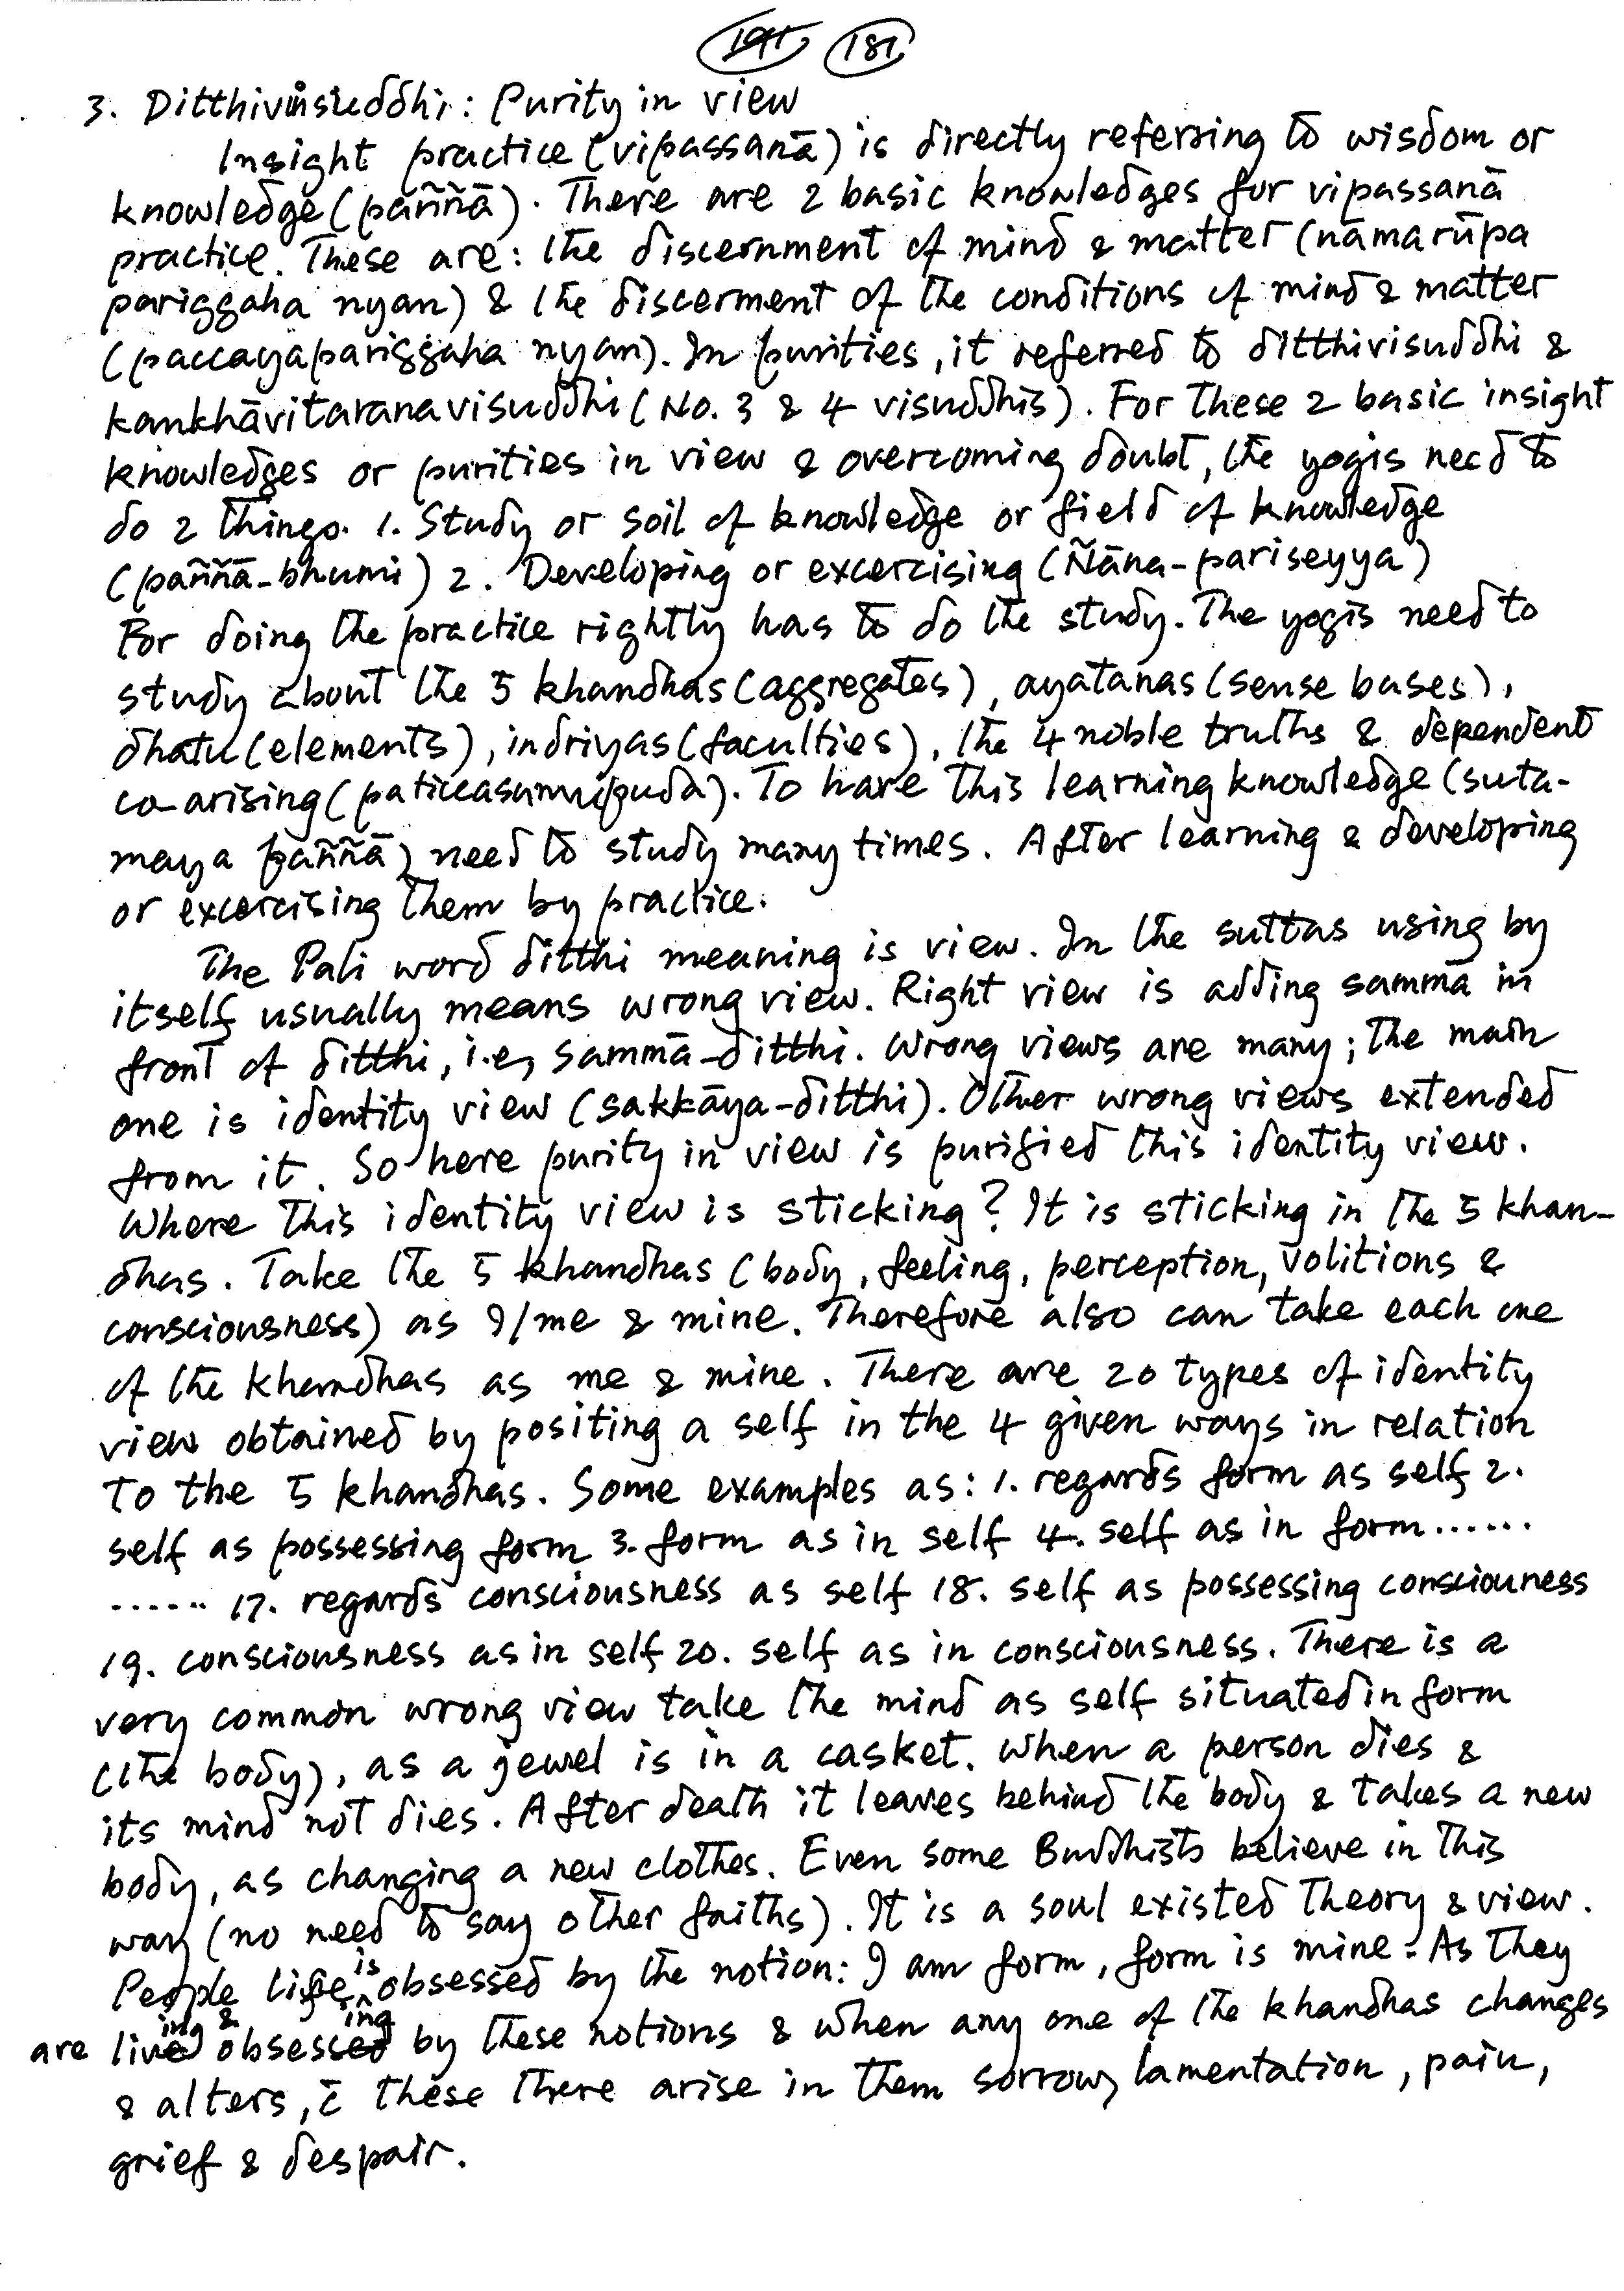 181
3. Ditthivisuddhi: Purity in view
Insight practice (vipassanā) is directly referring to wisdom or
knowledge (paññā). There are 2 basic knowledges for vipassanā
practice. These are: the discernment of mind & matter (nāmarūpa
pariggaha nyan) & the discerment of the conditions of mind & matter
(paccayapariggaha nyan). In purities, it referred to ditthivisuddhi &
kankhāvitaranavisuddhi (No. 3 & 4 visuddhis). For these 2 basic insight
knowledges or purities in view & overcoming doubt, the yogis need to
do 2 things. 1. Study or soil of knowledge or field of knowledge
(paññā-bhumi) 2. Developing or excercising (Ñāna-pariseyya)
For doing the practice rightly has to do the study. The yogis need to
study about the 5 khandhas (aggregates), ayatanas (sense bases),
dhatu (elements), indriyas (faculties), the 4 noble truths & dependent
co-arising (). To have this learning knowledge (suta-
maya paññā) need to study many times. After learning & developing
or excercising them by practice.
The Pali word ditthi meaning is view. In the suttas using by
itself usually means wrong view. Right view is adding sammā in
front of ditthi, i.e, sammā-ditthi. Wrong views are many; the main
one is identity view (sakkāya-ditthi). Other wrong views extended
from it. So here purity in view is purified this identity view.
Where this identity view is sticking? It is sticking in the 5 khan-
dhas. Take the 5 khandhas (body, feeling, perception, volitions &
consciousness) as I/me & mine. Therefore also can take each one
of the khandhas as me & mine. There are 20 types of identity
view obtained by positing a self in the 4 given ways in relation
to the 5 khandhas. Some examples as: 1. regards form as self 2.
self as possessing form 3. form as in self 4. self as in form ......
...... 17. regards consciousness as self 18. self as possessing consciouness
19. consciousness as in self 20. self as in consciousness. There is a
very common wrong view take the mind as self situated in form
(the body), as a jewel is in a casket. When a person dies &
its mind not dies. After death it leaves behind the body & takes a new
body, as changing a new clothes. Even some Buddhists believe in this
way (no need to say other faiths). It is a soul existed theory & view.
People life is obsessed by the notion: I am form, form is mine. As they
are living & obsessing by these notions & when any one of the khandhas changes
& alters, c̄ these there arise in them sorrow, lamentation, pain,
grief & despair.